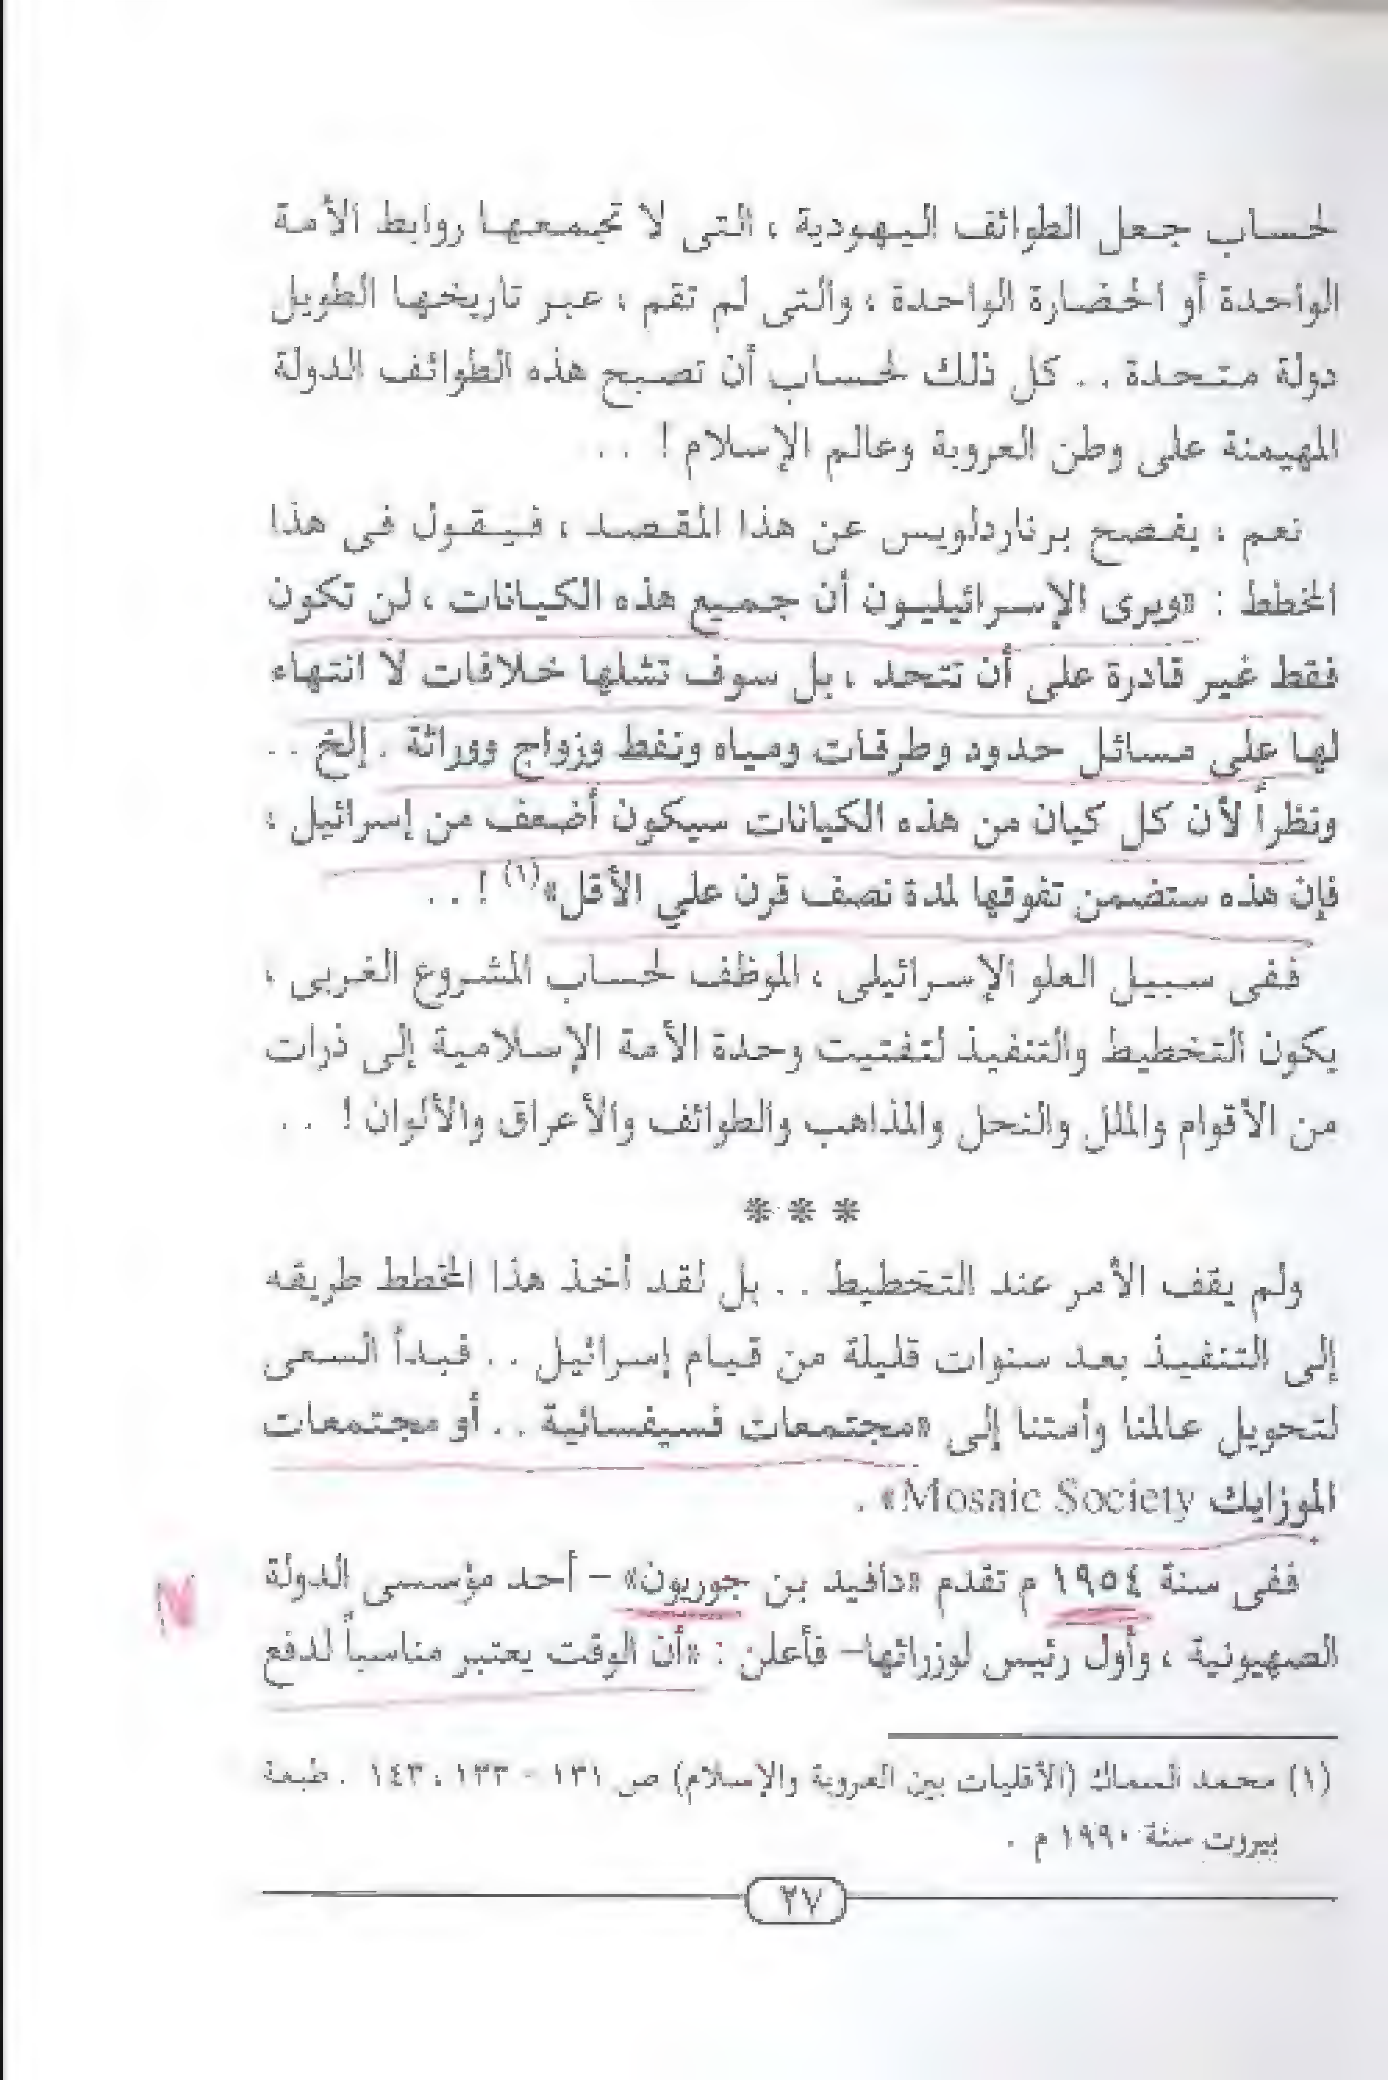 لحساب جعل الطوائف اليهودية ، التى لا تجمعها روابط الأمة
الواحدة أو الحضارة الواحدة ، والتى لم تقم ، عبر تاريخها الطويل
دولة متحدة . . كل ذلك لحساب أن تصبح هذه الطوائف الدولة
المهيمنة على وطن العروبة وعالم الإسلام ! . .
نعم ، يفصح برناردلويس عن هذا المقصد ، فيقول فى هذا
المخطط : «ويرى الإسرائيليون أن جميع هذه الكيانات ، لن تكون
فقط غير قادرة على أن تتحد ، بل سوف تشلها خلافات لا انتهاء
لها على مسائل حدود وطرقات ومياه ونفط وزواج ووراثة . إلخ . .
ونظراً لأن كل كيان من هذه الكيانات سيكون أضعف من إسرائيل ،
فإن هذه ستضمن تفوقها لمدة نصف قرن علي الأقل»(١) ! . .
ففى سبيل العلو الإسرائيلى ، الموظف لحساب المشروع الغربى ،
يكون التخطيط والتنفيذ لتفتيت وحدة الأمة الإسلامية إلى ذرات
من الأقوام والملل والنحل والمذاهب والطوائف والأعراق والألوان ! . .
* * *
ولم يقف الأمر عند التخطيط . . بل لقد أخذ هذا المخطط طريقه
إلى التنفيذ بعد سنوات قليلة من قيام إسرائيل . . فبدأ السعى
لتحويل عالمنا وأمتنا إلى «مجتمعات فسيفسائية . . أو مجتمعات
الموزايك Mosaic Society» .
ففى سنة ١٩٥٤ م تقدم «دافيد بن جوريون» – أحد مؤسسى الدولة
الصهيونية ، وأول رئيس لوزرائها– فأعلن : «أن الوقت يعتبر مناسباً لدفع
(١) محمد السماك (الأقليات بين العروبة والإسلام) ص ١٣١ - ١٣٣ ، ١٤٣ . طبعة
بيروت سنة ١٩٩٠ م .
٢٧